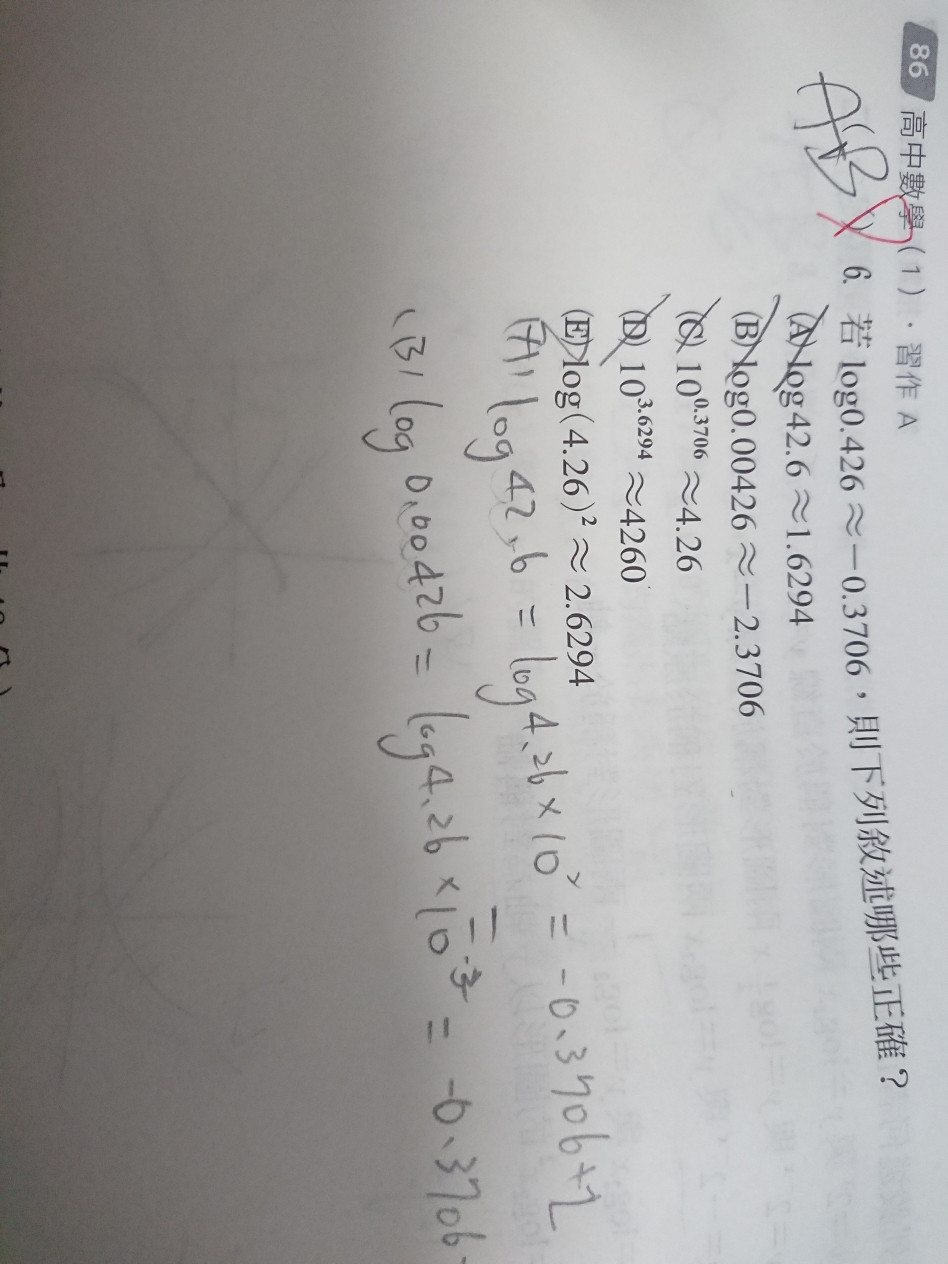 86 高中數學(1)·習作 A
AB
6. 若 log0.426≈−0.3706,則下列敘述哪些正確?
(A) log42.6≈1.6294
(B) log0.00426≈−2.3706
(C) 10^0.3706≈4.26
(D) 10^3.6294≈4260
(E) log(4.26)²≈2.6294
(A) log 42.6 = log 4.26×10² = -0.3706+2
(B) log 0.00426 = log 4.26×10^-3 = -0.3706-